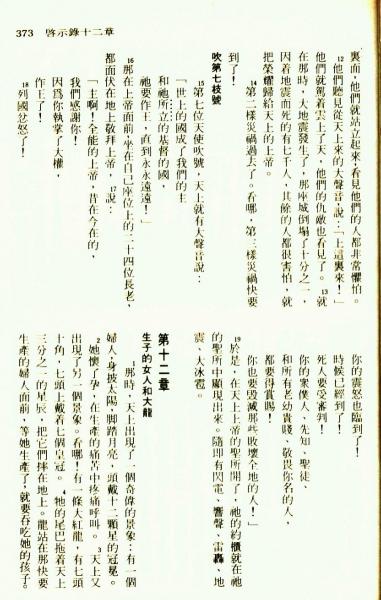 373 啓示錄十二章
裏面，他們就站立起來；看見他們的人都非常懼怕。
12他們聽見從天上來的大聲音說：「上這裏來！」
他們就駕着雲上了天，他們的仇敵也看見了。13就
在那時，大地震發生了，那座城倒塌了十分之一，
因着地震而死的有七千人，其餘的人都很害怕，就
把榮耀歸給天上的上帝。
14第二樣災禍過去了。看哪，第三樣災禍快要
到了！
吹第七枝號
15第七位天使吹號，天上就有大聲音說：
「世上的國成了我們的主
和祂所立的基督的國，
祂要作王，直到永永遠遠！」
16那在上帝面前，坐在自己座位上的二十四位長老，
都面伏在地上敬拜上帝，17說：
「主啊！全能的上帝，昔在今在的，
我們感謝你！
因爲你執掌了大權，
作王了！
18列國忿怒了！
你的震怒也臨到了！
時候已經到了！
死人要受審判！
你的衆僕人、先知、聖徒、
和所有老幼貴賤、敬畏你名的人，
都要得賞賜！
你也要毀滅那些敗壞全地的人！」
19於是，在天上上帝的聖所開了，祂的約櫃就在祂
的聖所中顯現出來。隨即有閃電、響聲、雷轟、地
震、大冰雹。
第十二章
生子的女人和大龍
1那時，天上出現了一個奇偉的景象：有一個
婦人，身披太陽，腳踏月亮，頭戴十二顆星的冠冕。
2她懷了孕，在生產的痛苦中疼痛呼叫。3天上又
出現了另一個景象。看哪！有一條大紅龍，有七頭
十角，七頭上戴着七個皇冠。4牠的尾巴拖着天上
三分之一的星辰，把它們摔在地上。龍站在那快要
生產的婦人面前，等她生產了，就要吞吃她的孩子。